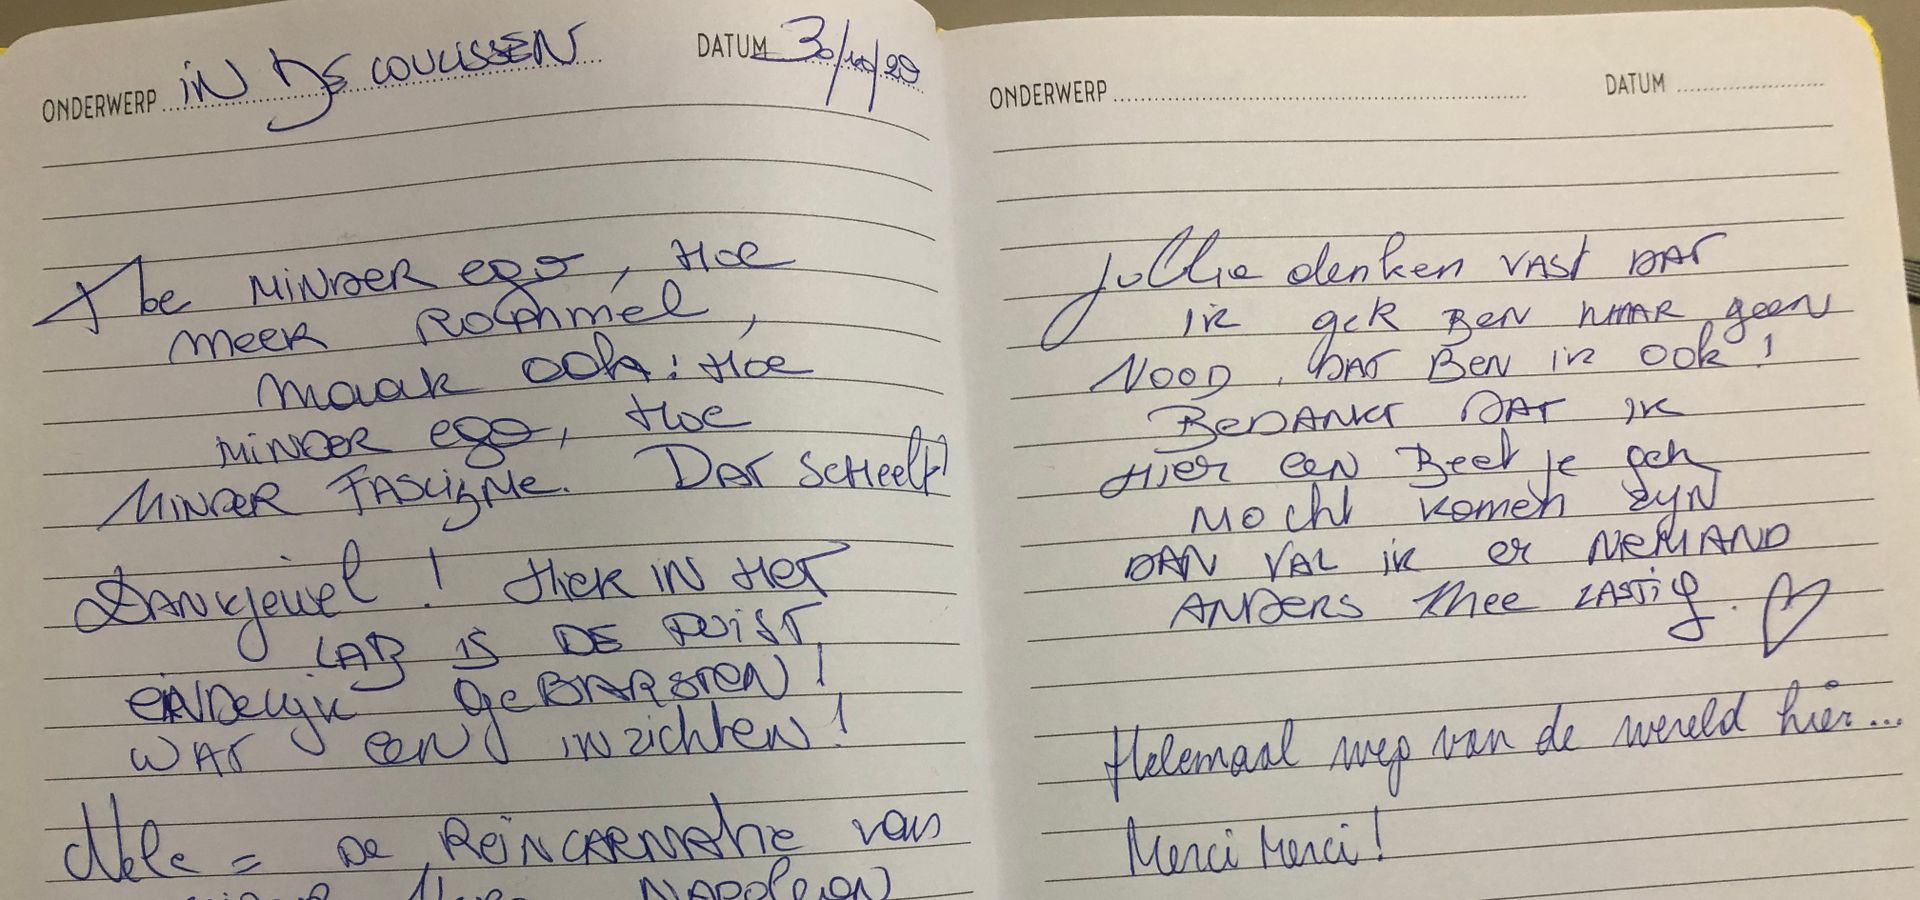 ONDERWERP IN DE COULISSEN DATUM 30/10/20
Hoe MINDER ego, Hoe
meer ROMmel,
maak ook: Hoe
MINDER ego, Hoe
MINDER FASCISME. DAT SCHEELT!
DANKjewel! HIER IN HET
LAB IS DE PUIST
eiNDelijk geBARSTEN!
WAT een inzichten!
Nele = De REINCARNAtie van
NAPOLEON
ONDERWERP DATUM
Jullie denken VAST DAT
ik gek BEN MAAR geen
NOOD, DAT BEN ik ook!
BEDANKT DAT ik
HIER een Beetje gek
MOcht komen ZIJN
DAN VAL ik er NIEMAND
ANDERS mee LASTIG. ♡
Helemaal weg van de wereld hier...
Merci Merci!